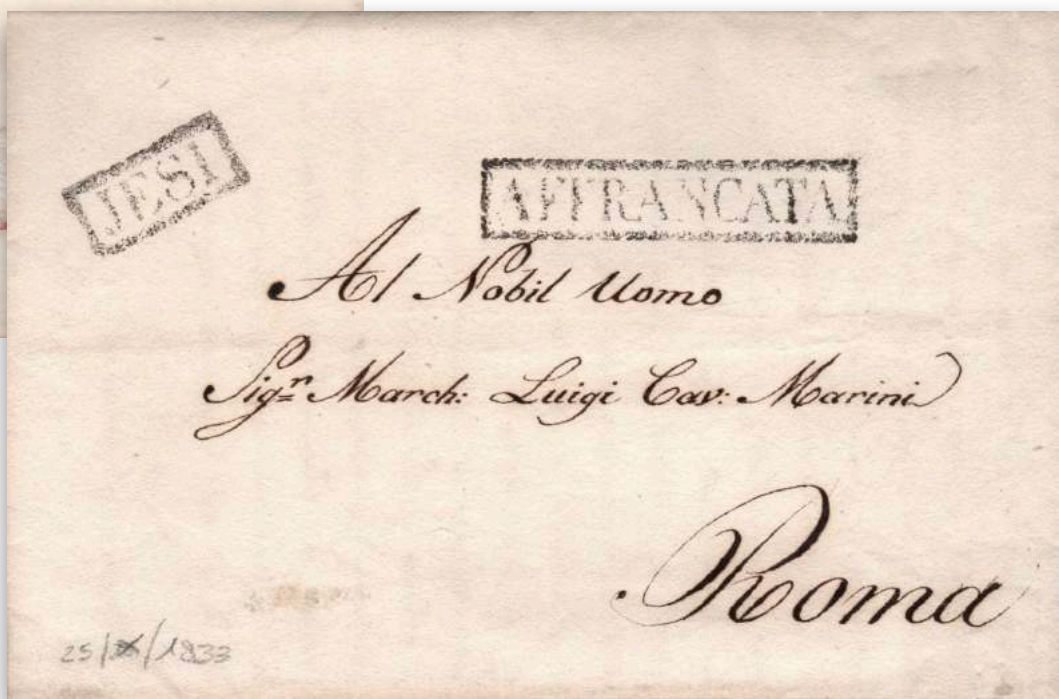 JESI
AFFRANCATA
Al Nobil Uomo
Sig.r March: Luigi Cav: Marini
Roma
1833